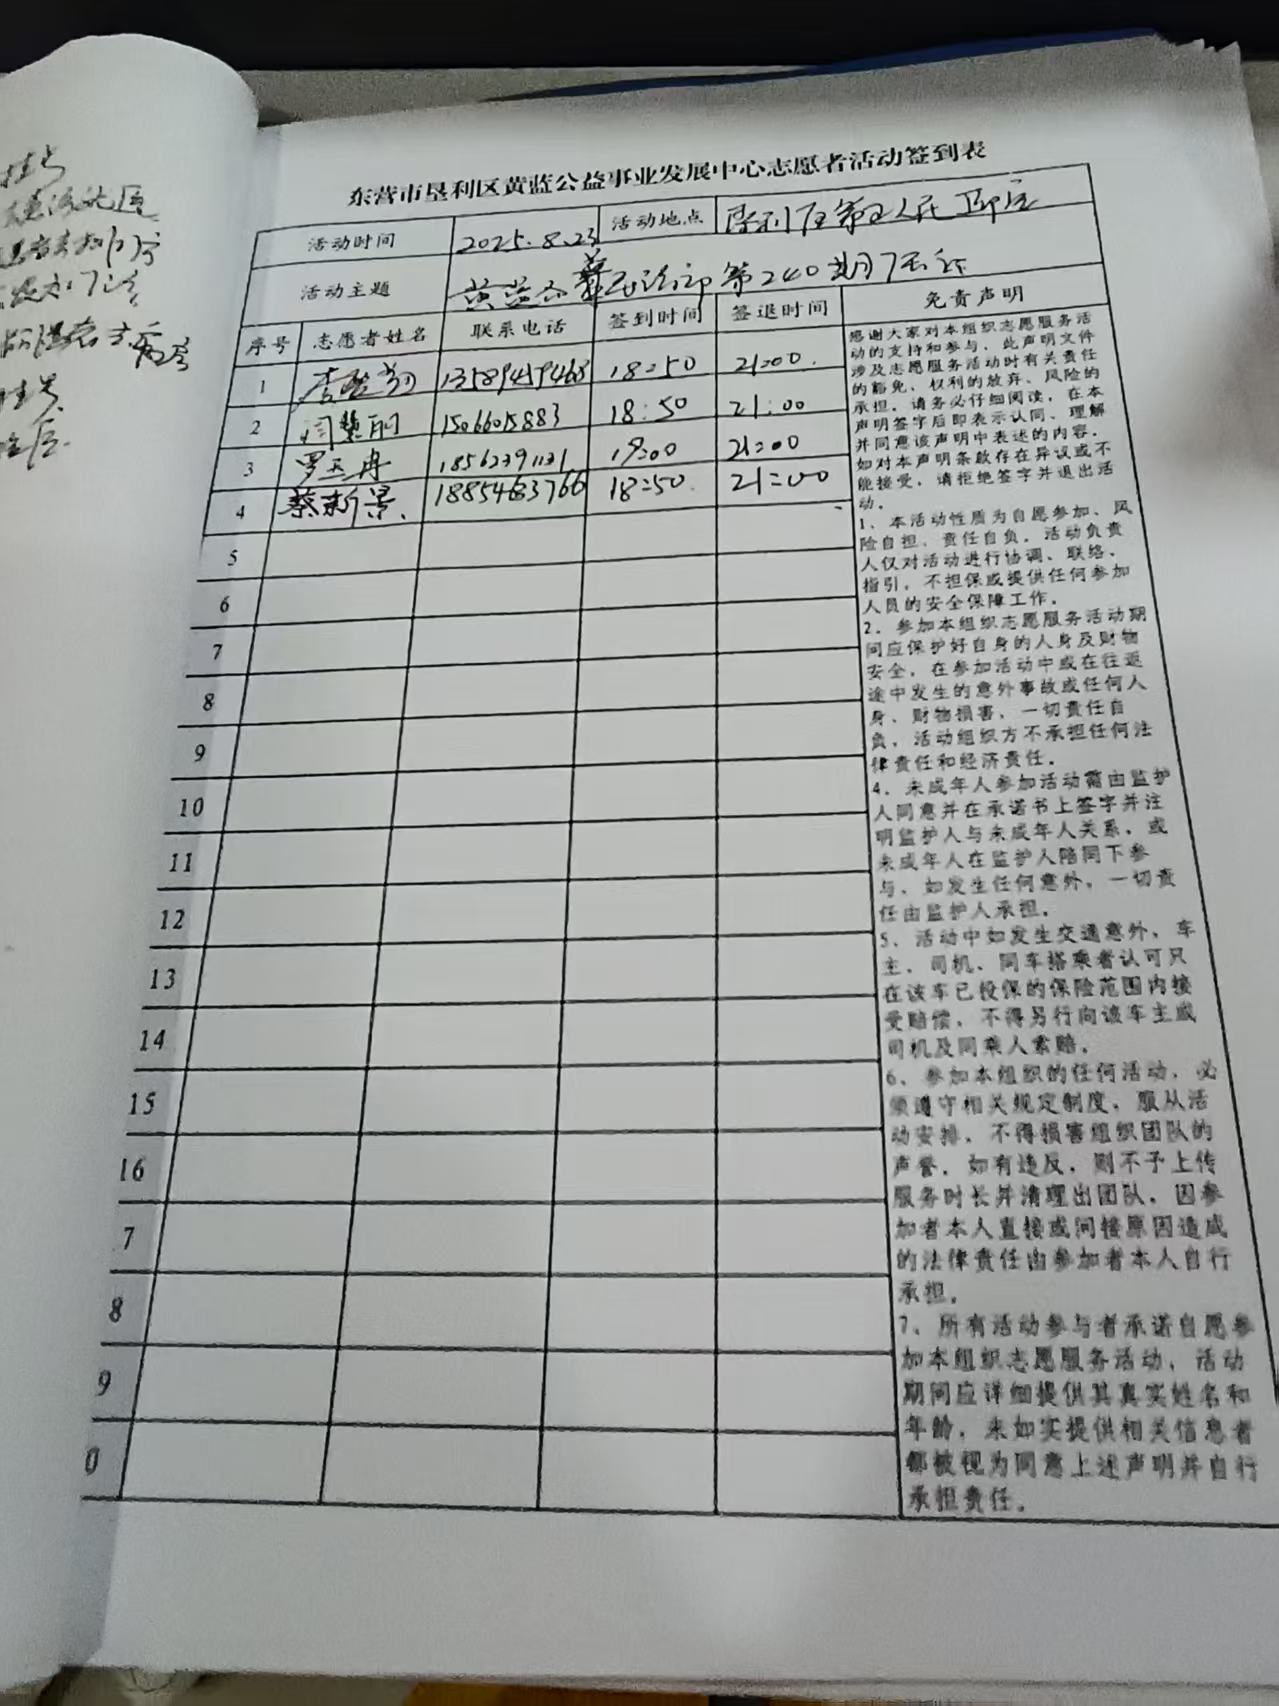 东营市垦利区黄蓝公益事业发展中心志愿者活动签到表
活动时间 2025.8.23 活动地点 垦利区第二人民医院
活动主题 黄蓝 第240期
序号 志愿者姓名 联系电话 签到时间 签退时间 免责声明
1 13589459468 18:50 21:00.
2 闫慧丽 15066015883 18:50 21:00
3 罗玉冉 18562391131 19:00 21:00
4 蔡新景. 18854683766 18:50. 21:00
5
6
7
8
9
10
11
12
13
14
15
16
7
8
9
0
感谢大家对本组织志愿服务活
动的支持和参与，此声明文件
涉及志愿服务活动时有关责任
的豁免，权利的放弃、风险的
承担。请务必仔细阅读，在本
声明签字后即表示认同、理解
并同意该声明中表述的内容。
如对本声明条款存在异议或不
能接受，请拒绝签字并退出活
动。
1、本活动性质为自愿参加、风
险自担、责任自负。活动负责
人仅对活动进行协调、联络、
指引，不担保或提供任何参加
人员的安全保障工作。
2、参加本组织志愿服务活动期
间应保护好自身的人身及财物
安全，在参加活动中或在往返
途中发生的意外事故或任何人
身、财物损害，一切责任自
负，活动组织方不承担任何法
律责任和经济责任。
4、未成年人参加活动需由监护
人同意并在承诺书上签字并注
明监护人与未成年人关系，或
未成年人在监护人陪同下参
与，如发生任何意外，一切责
任由监护人承担。
5、活动中如发生交通意外，车
主、司机、同车搭乘者认可只
在该车已投保的保险范围内接
受赔偿，不得另行向该车主或
司机及同乘人索赔。
6、参加本组织的任何活动，必
须遵守相关规定制度，服从活
动安排，不得损害组织团队的
声誉，如有违反，则不予上传
服务时长并清理出团队，因参
加者本人直接或间接原因造成
的法律责任由参加者本人自行
承担。
7、所有活动参与者承诺自愿参
加本组织志愿服务活动，活动
期间应详细提供其真实姓名和
年龄，未如实提供相关信息者
都被视为同意上述声明并自行
承担责任。